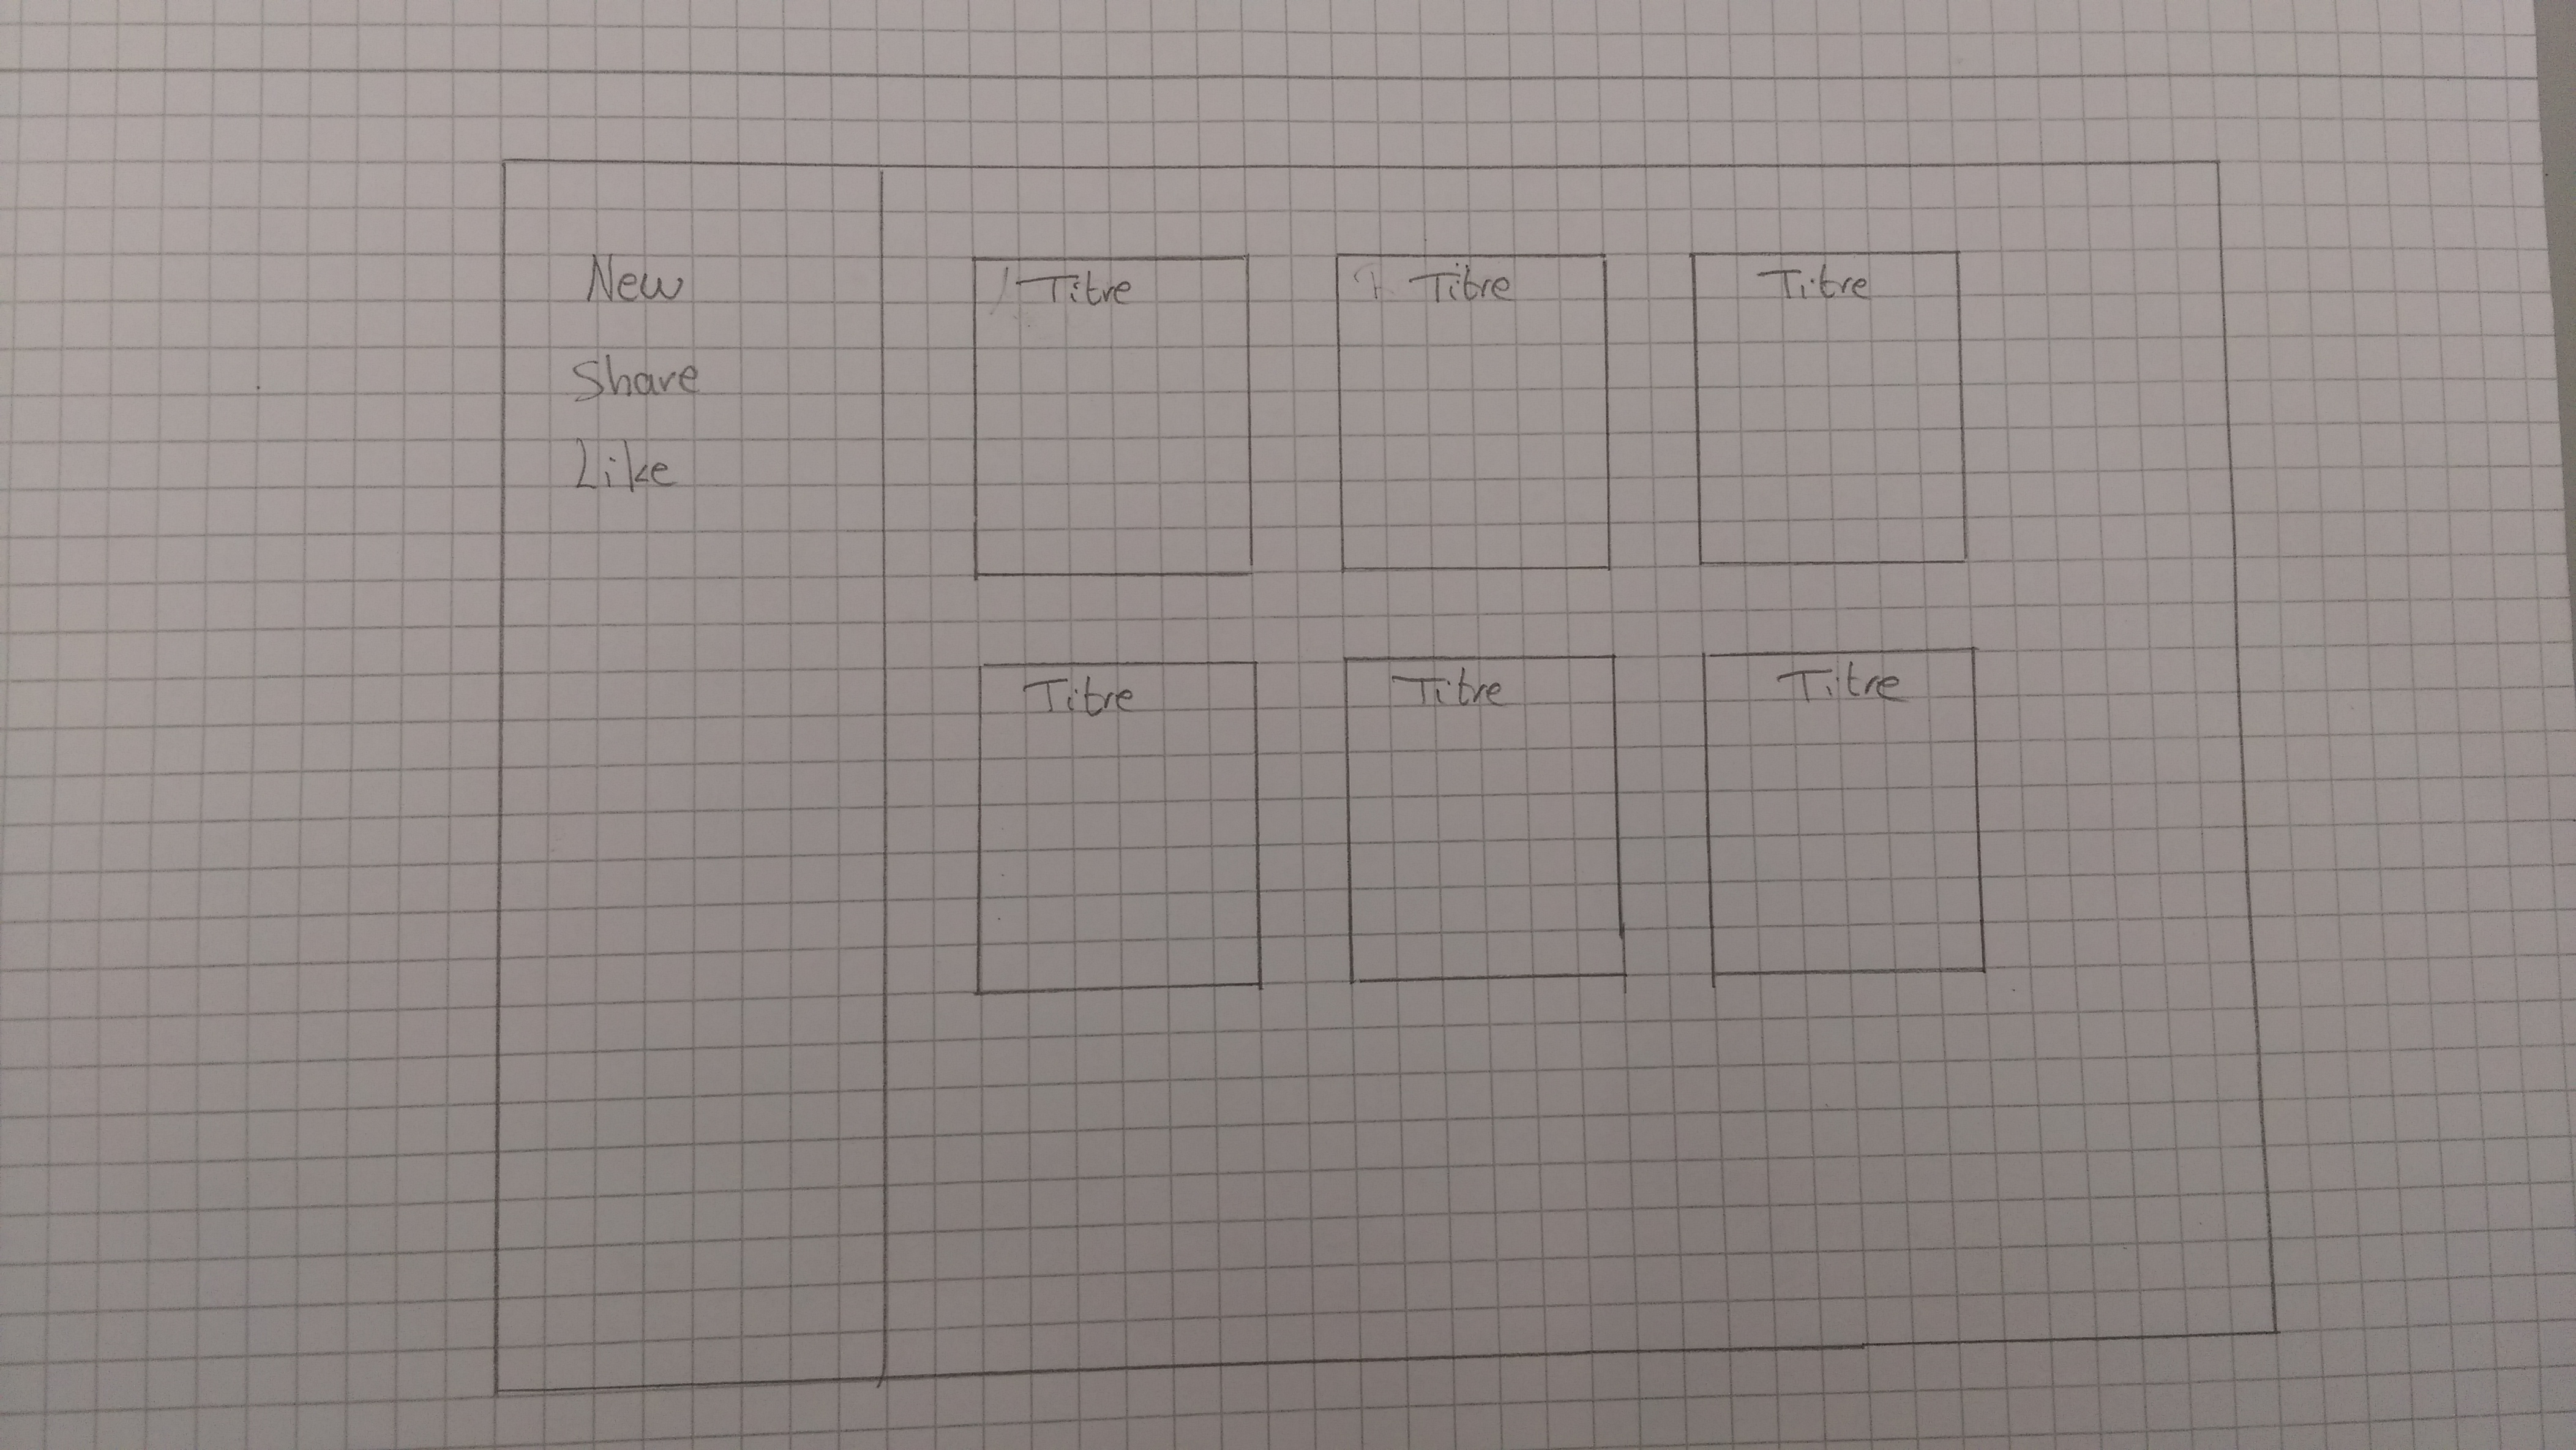 New
Share
Like
Titre
Titre
Titre
Titre
Titre
Titre